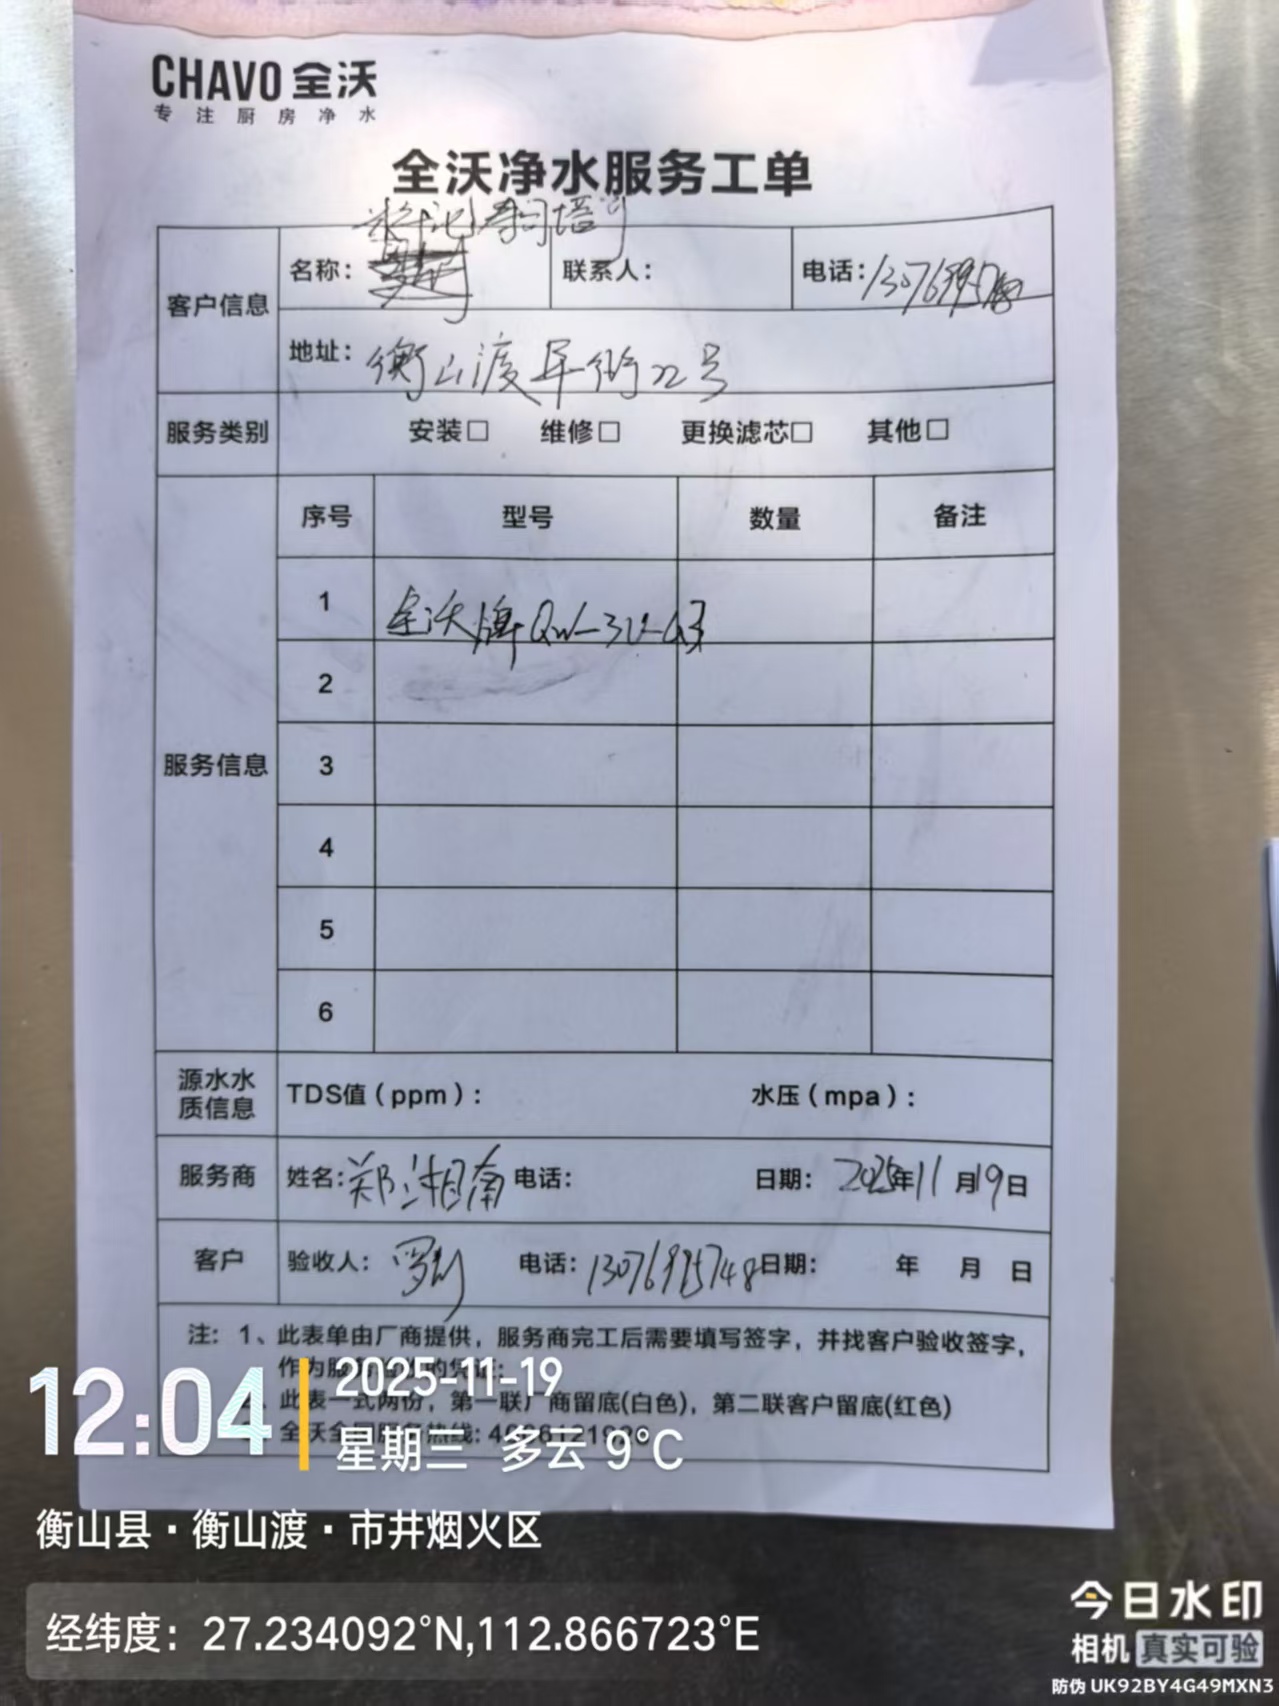 CHAVO 全沃
专注厨房净水
全沃净水服务工单
客户信息
名称：
联系人：
电话：1307699
地址：衡山渡 街22号
服务类别 安装□ 维修□ 更换滤芯□ 其他□
服务信息
序号 型号 数量 备注
1 全沃牌QW-3U-
2
3
4
5
6
源水水质信息 TDS值（ppm）： 水压（mpa）：
服务商 姓名：郑湘南 电话： 日期：2025年11月19日
客户 验收人： 电话：13076995748 日期： 年 月 日
注：1、此表单由厂商提供，服务商完工后需要填写签字，并找客户验收签字，
作为服 的凭证；
此表一式两份，第一联厂商留底(白色)，第二联客户留底(红色)
全沃全国服务热线：
12:04
2025-11-19
星期三 多云 9°C
衡山县·衡山渡·市井烟火区
经纬度：27.234092°N,112.866723°E
今日水印
相机 真实可验
防伪 UK92BY4G49MXN3